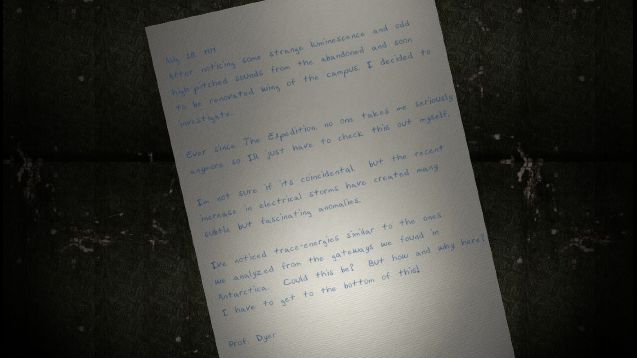 After noticing some strange luminescence and odd
high-pitched sounds from the abandoned and soon
to be renovated wing of the campus. I decided to
investigate.
Ever since The Expedition, no one takes me seriously
anymore so I'll just have to check this out myself.
I'm not sure if its coincidental but the recent
increase in electrical storms have created many
subtle but fascinating anomalies.
I've noticed trace-energies similar to the ones
we analyzed from the gateways we found in
Antarctica. Could this be? But how and why here?
I have to get to the bottom of this!
Prof. Dyer